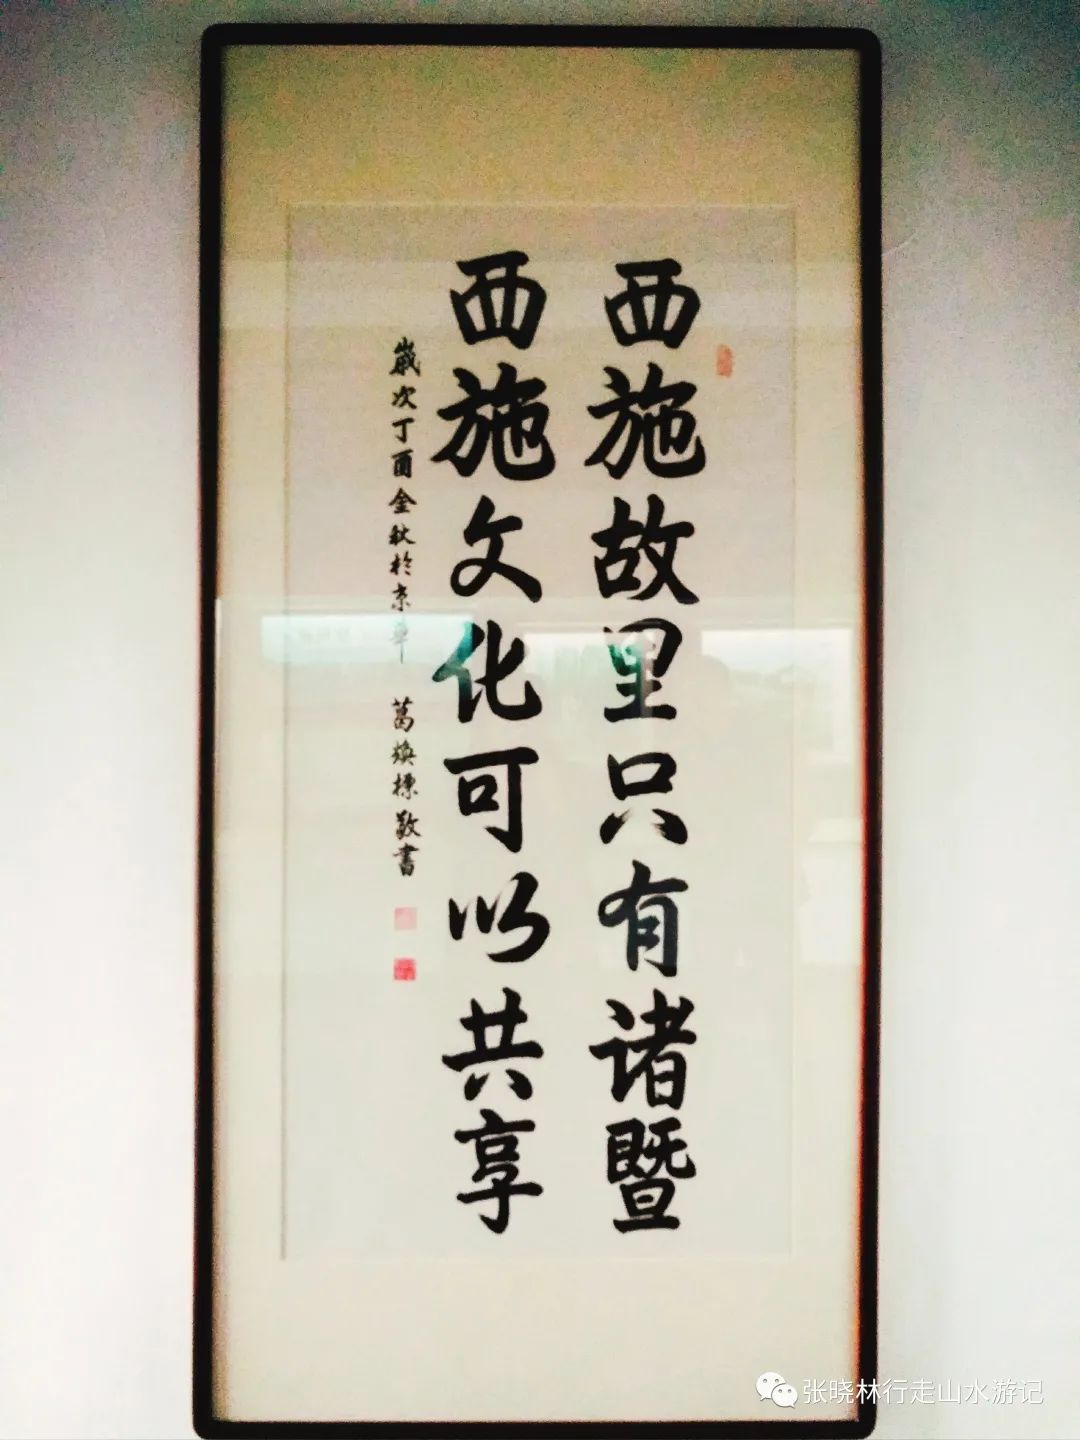 西施故里只有诸暨
西施文化可以共享
歲次丁酉金秋於京華 葛焕標敬書
张晓林行走山水游记